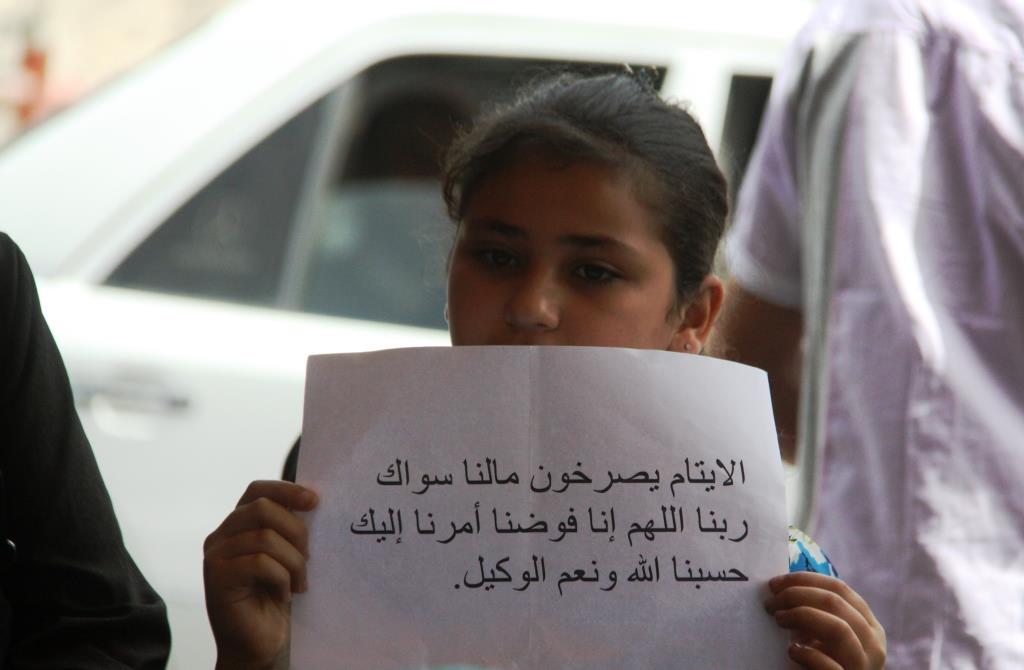 الايتام يصرخون مالنا سواك
ربنا اللهم إنا فوضنا أمرنا إليك
حسبنا الله ونعم الوكيل.